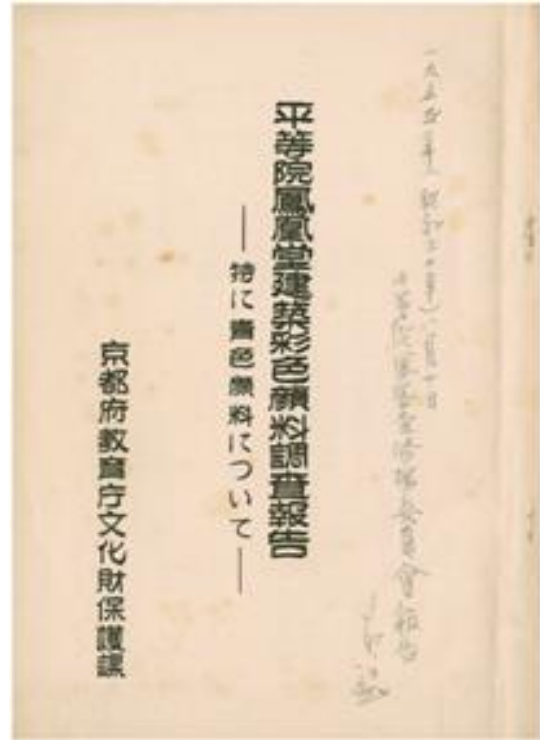 一九五五年(昭和三十年)八月十日
平等院鳳凰堂修理委員會報告
平等院鳳凰堂建築彩色顔料調査報告
―― 特に青色顔料について ――
京都府教育庁文化財保護課